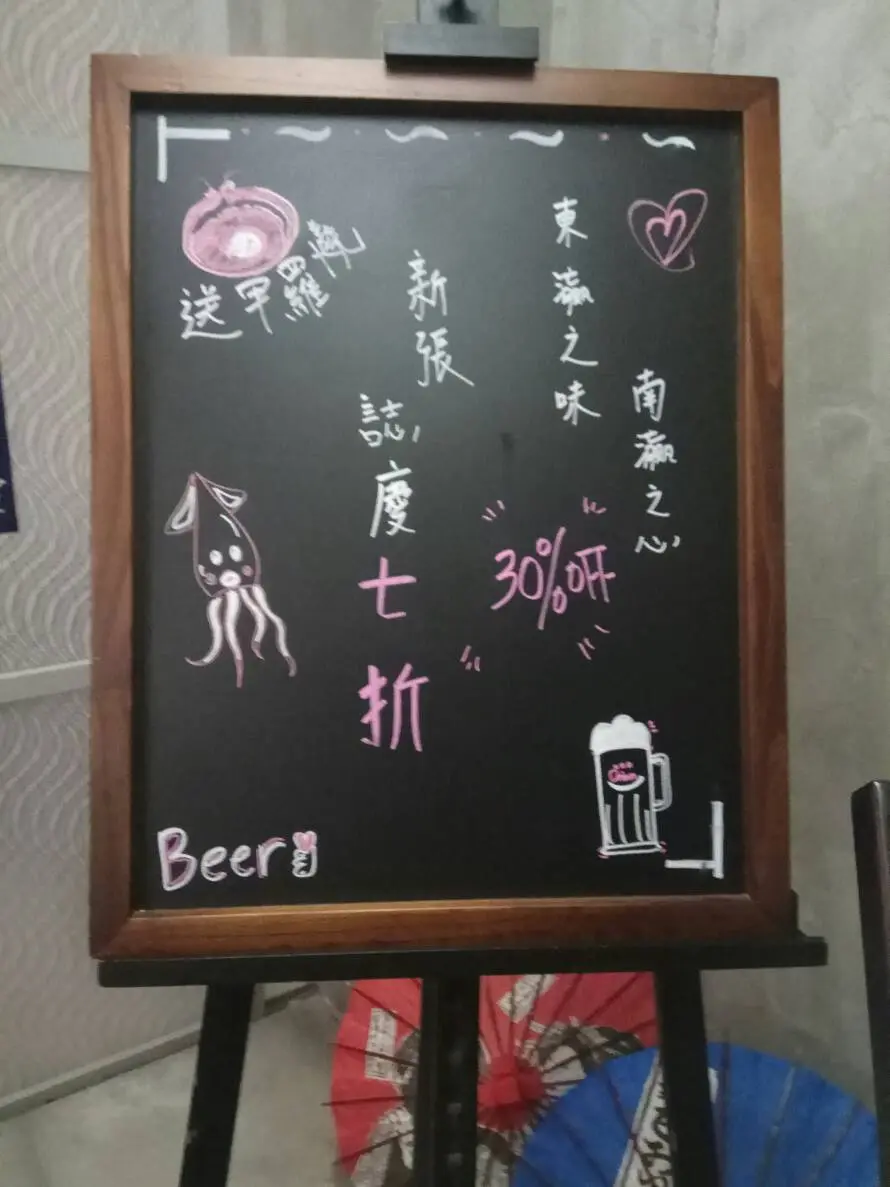 東瀛之味
南瀛之心
新張
誌慶
七折
30% off
送甲羅燒
Beer